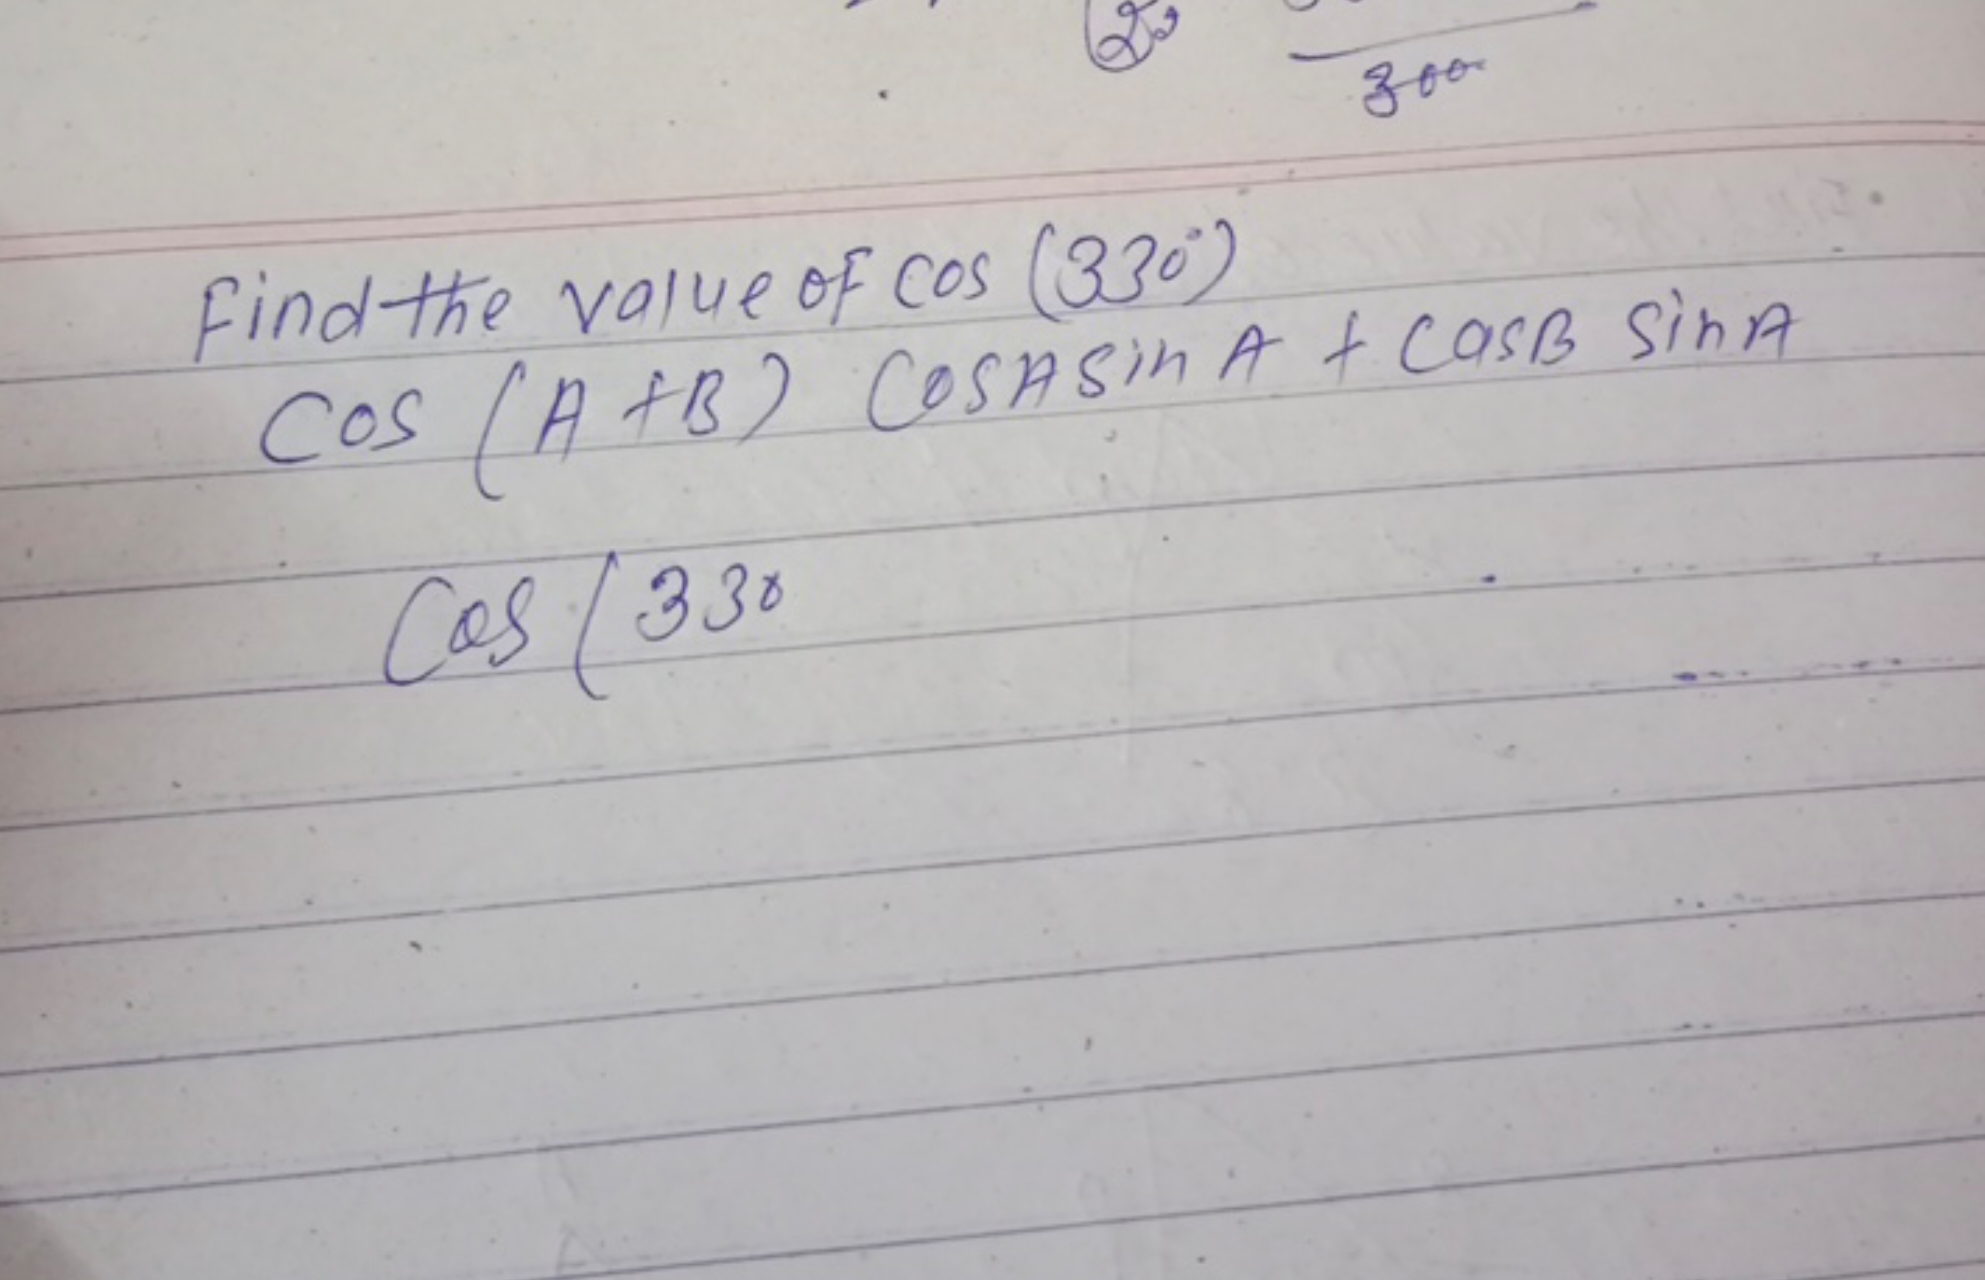 2,
300
Find the value of cos (330°)
Cos (A+B) CosA sin A + CosB Sin A
Cos (330